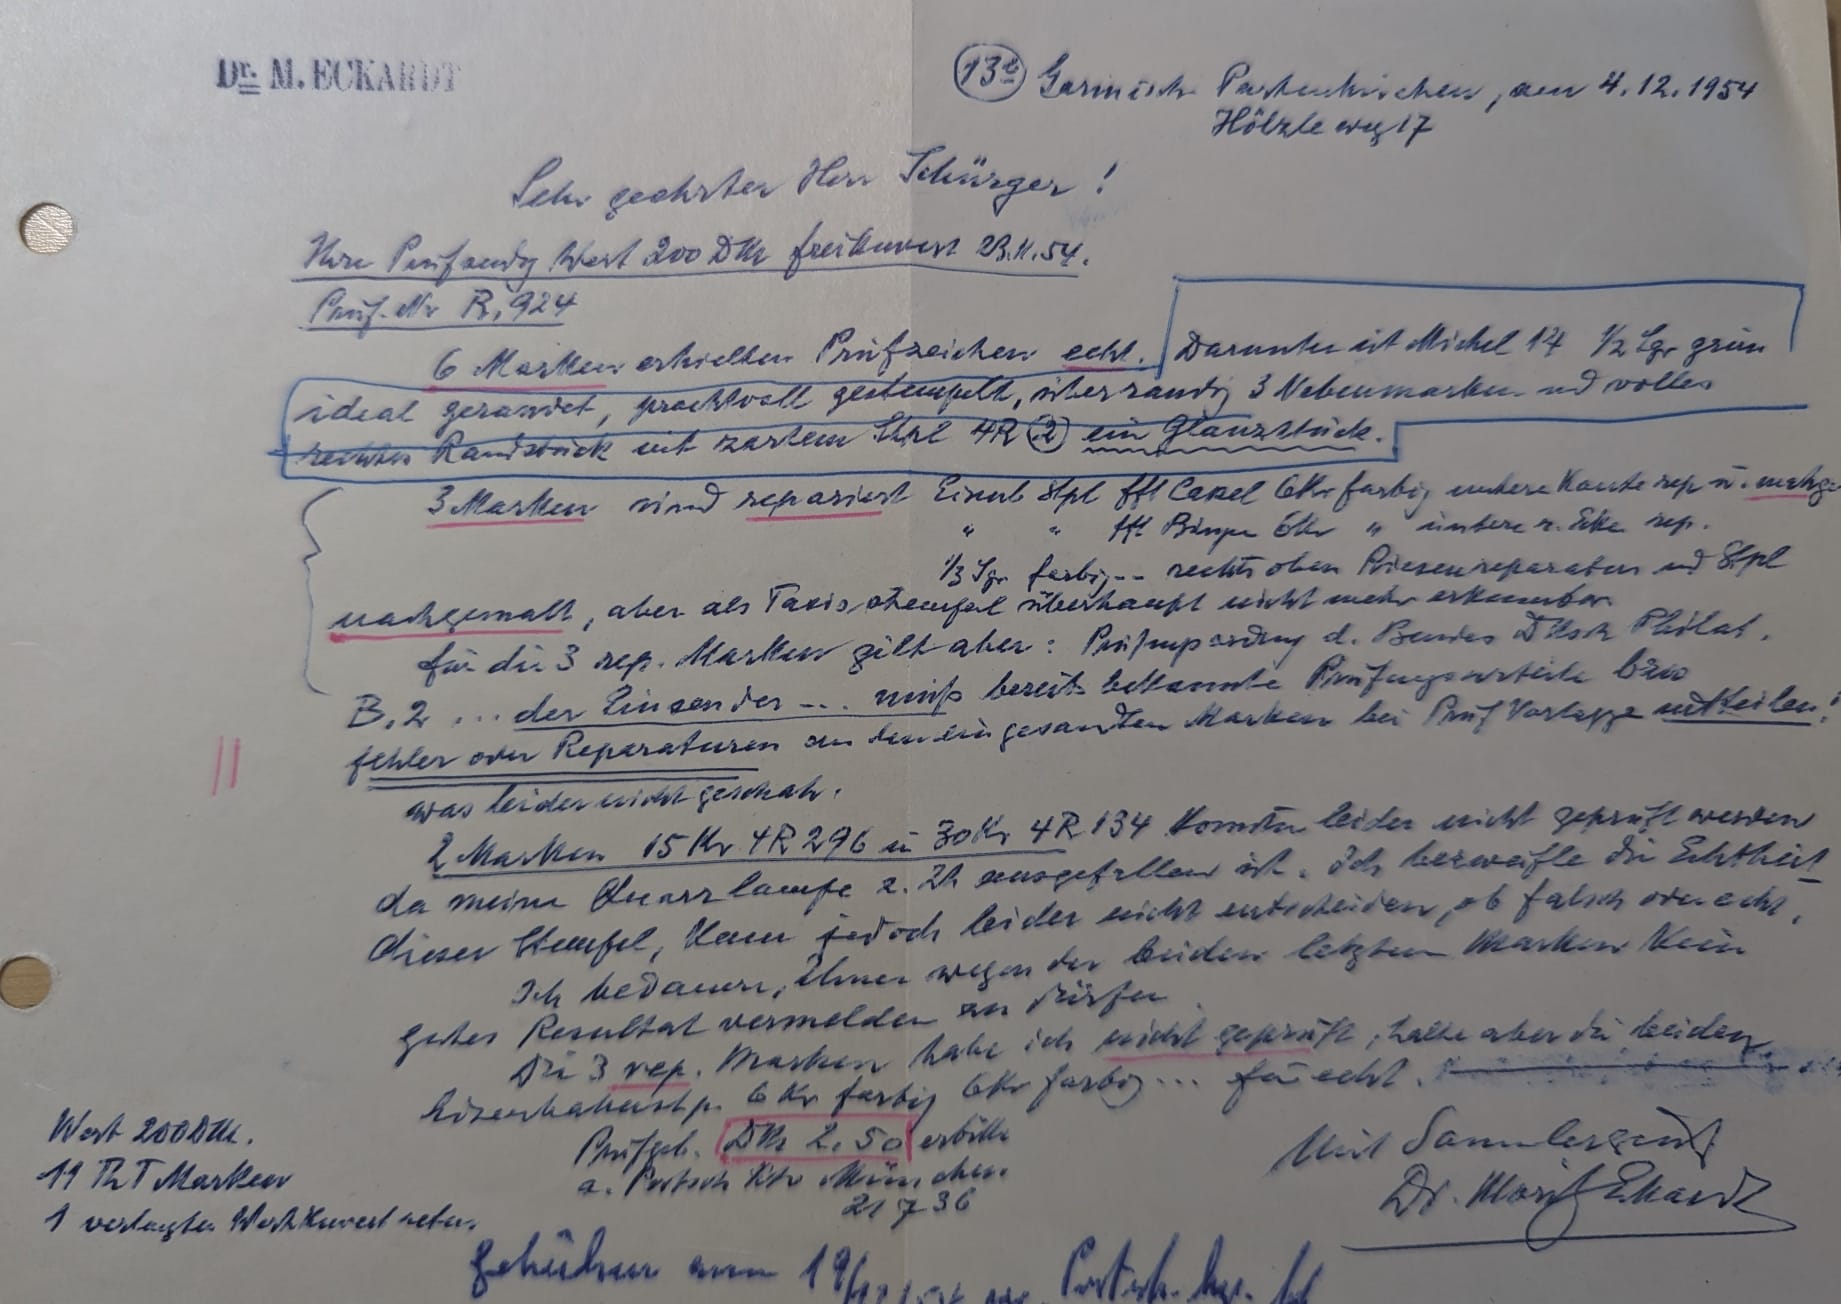 Dr. M. ECKARDT
(13b) Garmisch Partenkirchen, den 4.12.1954
Hölzleweg 17
Sehr geehrter Herr Schürger!
Ihre Prüfsendg Wert 200 DM freikuvert 23.11.54.
Prüf.-Nr R. 924
6 Marken erhielten Prüfzeichen echt. Darunter ist Michel 14 1/2 Sgr grün
ideal gerandet, prachtvoll gestempelt, überrandig 3 Nebenmarken und volles
rechtes Randstück mit zartem Stpl 4R (2) ein Glanzstück.
3 Marken sind repariert Eisenb Stpl ffl Cassel 6Kr farbig untere Kante rep u.
" " ffl Bingen 6Kr " untere r. Ecke rep.
1/3 Sgr farbig -- rechts oben Riesenreparatur und Stpl
nachgemalt, aber als Taxisstempel überhaupt nicht mehr erkennbar
für die 3 rep. Marken gilt aber: Prüfungsordng d. Bundes Dtsch Philat.
B. 2 ... der Einsender ... muß bereits bekannte Prüfungsurteile bzw
fehler oder Reparaturen an den eingesandten Marken bei Prüf Vorlage mitteilen!
was leider nicht geschah.
2 Marken 15 Kr 4R 296 u 30 Kr 4R 134 konnten leider nicht geprüft werden
da meine Quarzlampe z. Zt ausgefallen ist. Ich bezweifle die Echtheit
dieser Stempel, kann jedoch leider nicht entscheiden, ob falsch oder echt.
Ich bedauere, Ihnen wegen der beiden letzten Marken kein
gutes Resultat vermelden zu dürfen.
Die 3 rep. Marken habe ich nicht geprüft, halte aber die beiden
Eisenbahnstp. 6 Kr farbig 6Kr farbig ... für echt.
Prüfgeb. DM 2.50 erbitte
a. Postsch Kto München
21 7 36
Mit Sammlergruß
Dr. Moritz Eckardt
Wert 200 DM.
11 ThT Marken
1 verlagter Wertkuvert retour.
Gebühren am 19/12/54 Postsch.